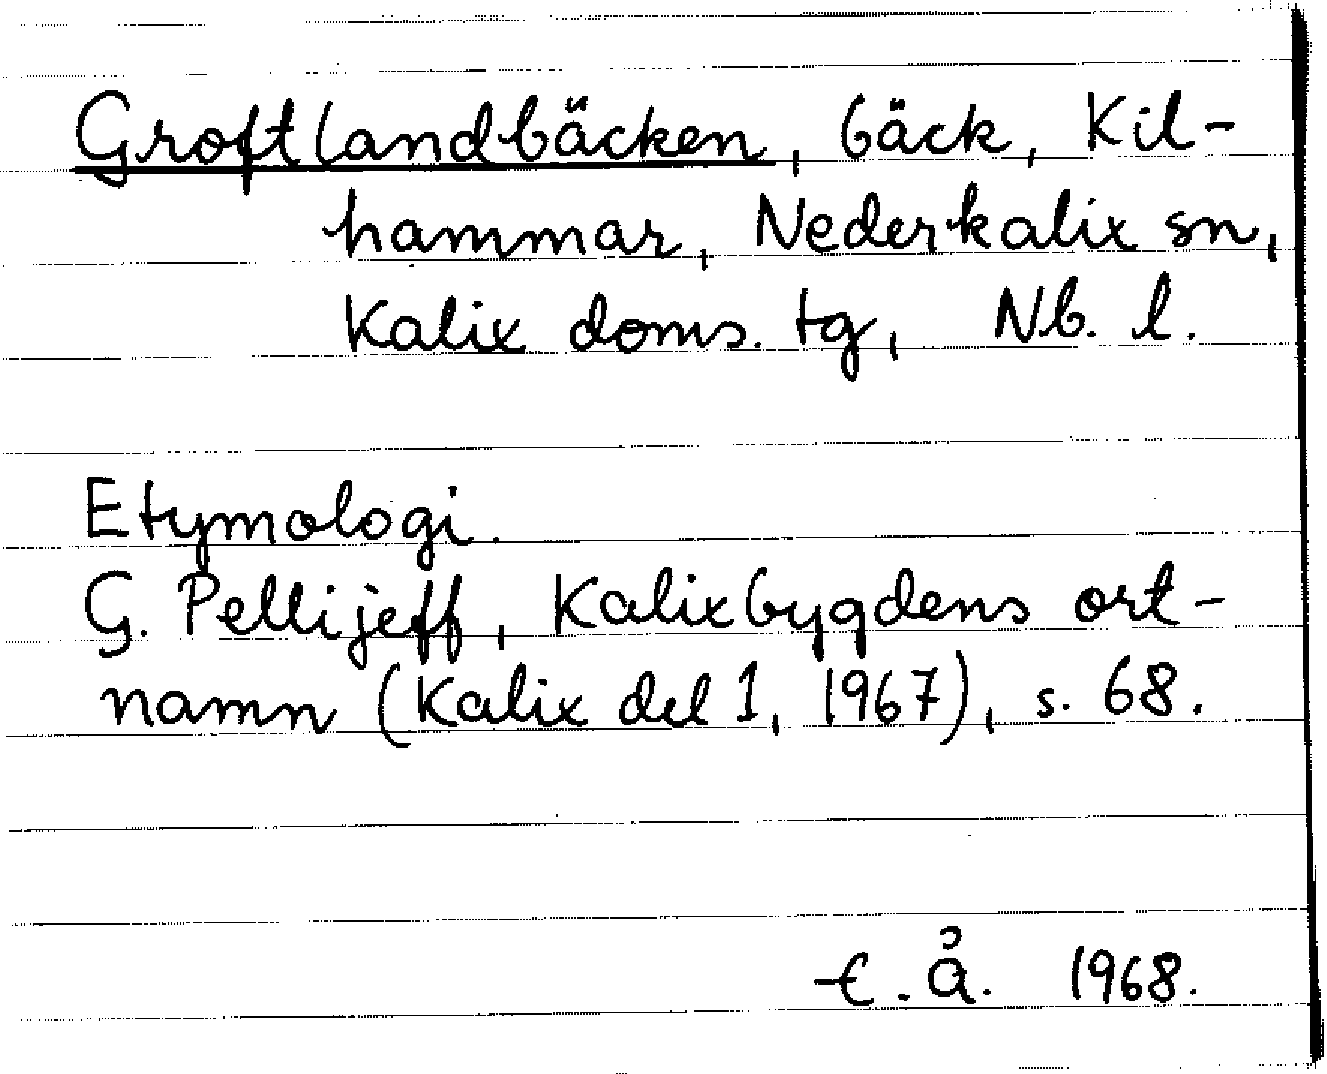 Groftlandbäcken, bäck, Kil-
hammar, Nederkalix sn,
Kalix doms. tg, Nb. l.
Etymologi.
G. Pellijeff, Kalixbygdens ort-
namn (Kalix del 1, 1967), s. 68.
E. Å. 1968.